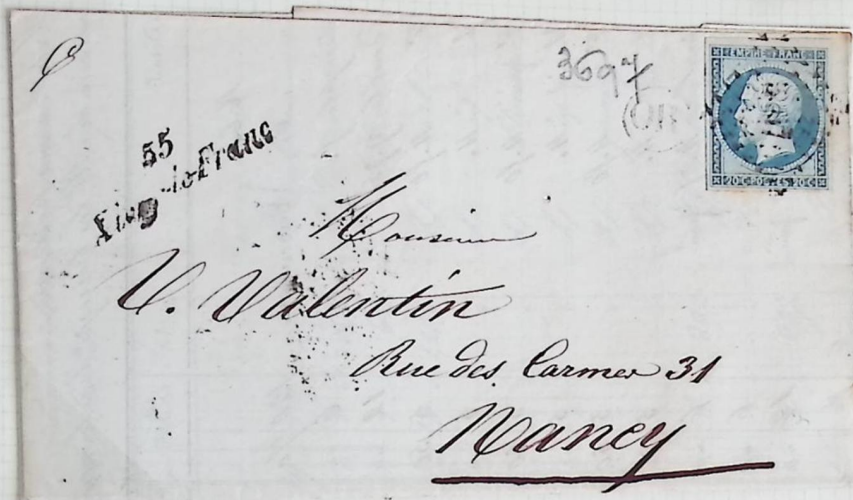 3697
EMPIRE FRANC
20 C. POSTES 20 C.
55
Xivry-le-Franc
Monsieur
V. Valentin
Rue des Carmes 31
Nancy